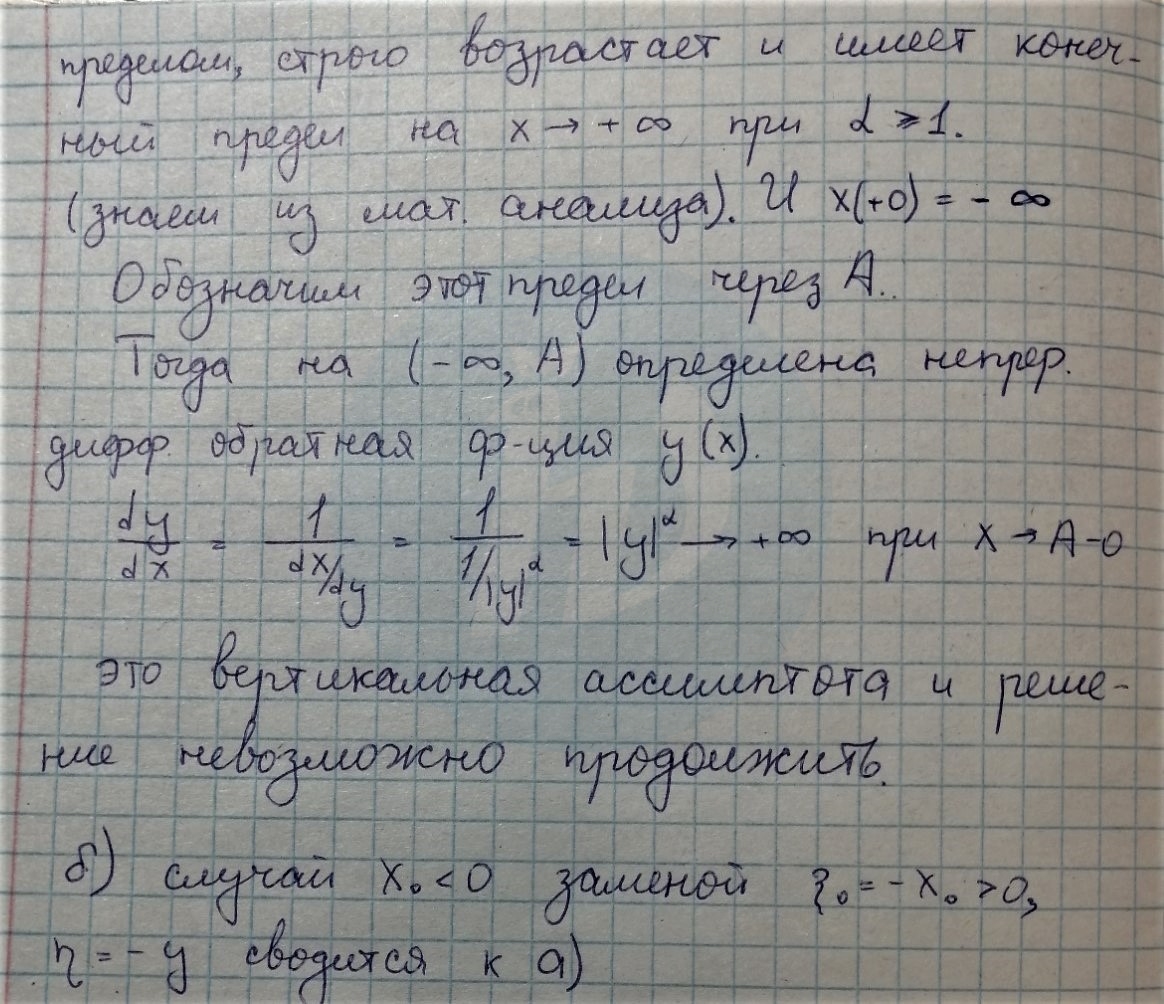 пределом, строго возрастает и имеет конеч-
ный предел на x → + ∞ при α ⩾ 1.
(знаем из мат. анализа). И x(+0) = - ∞
Обозначим этот предел через A.
Тогда на (-∞, A) определена непрер.
дифф. обратная ф-ция y(x).
dy/dx = 1/(dx/dy) = 1/(1/|y|^α) = |y|^α → +∞ при x → A-0
это вертикальная ассимптота и реше-
ние невозможно продолжить.
б) случай x₀ < 0 заменой ξ₀ = - x₀ > 0,
η = - y сводится к а)